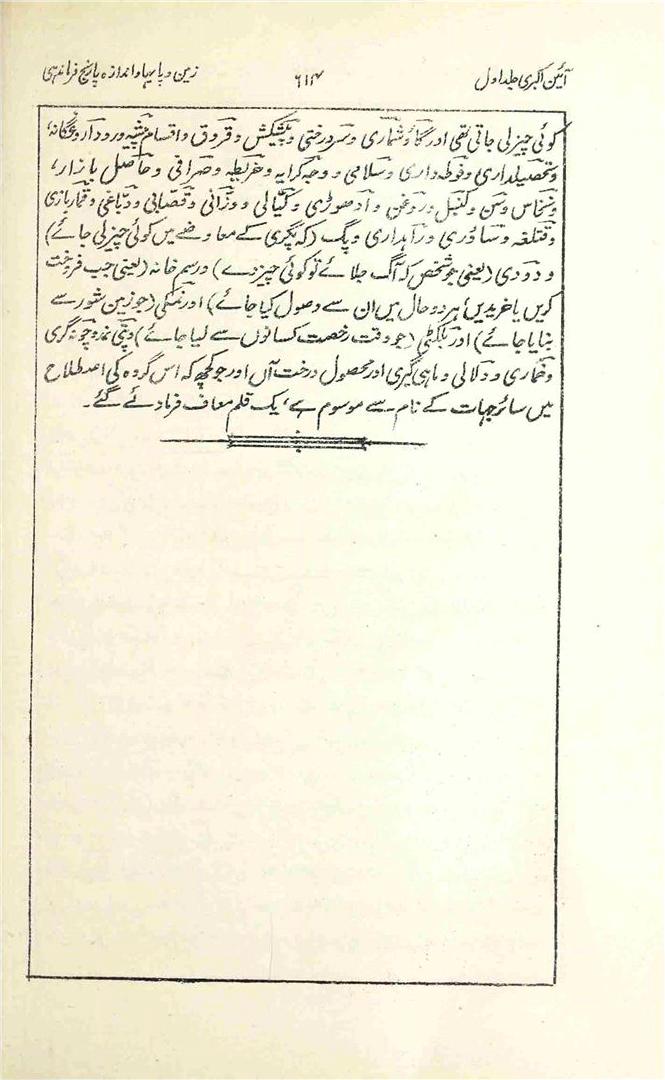 آئین اکبری جلد اول ۶۱۴ زمین و پایہا و اندازہ پانچ فرماندہی
کوئی چیز لی جاتی تھی اور گاؤ شماری و سر درختی و پیشکش و قروق و اقسام پیشہ ور و داروغگانہ،
و تحصیلداری و فوطہ داری و سلامی و وجہ کرایہ و خریطہ و صرافی و حاصل بازار،
و نخاس و سن و کنبل و روغن و ادھوڑی و کیالی و وزانی و قصابی و دباغی و قمار بازی
و راہداری و پگ (کہ پگڑی کے معاوضے میں کوئی چیز لی جائے)
و دودی (یعنی جو شخص کہ آگ جلائے تو کوئی چیز دے) و رسم خانہ (یعنی جب فروخت
کریں یا خریدیں ہر دو حال میں ان سے وصول کیا جائے) اور نمکی (جو زمین شور سے
بنایا جائے) اور بلکٹی (جو وقت رخصت کسانوں سے لیا جائے) و چونہ گری
و خماری و دلالی و ماہی گیری اور محصول درخت آل اور جو کچھ کہ اس گروہ کی اصطلاح
میں سائر جہات کے نام سے موسوم ہے، یک قلم معاف فرما دئے گئے۔